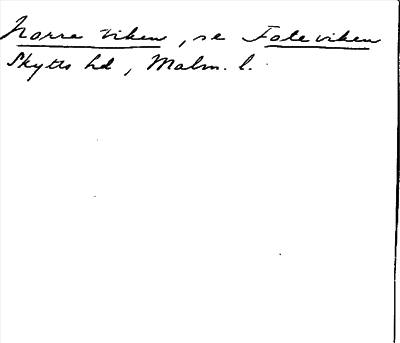 Norra viken, se Foleviken
Skytts hd, Malm. l.